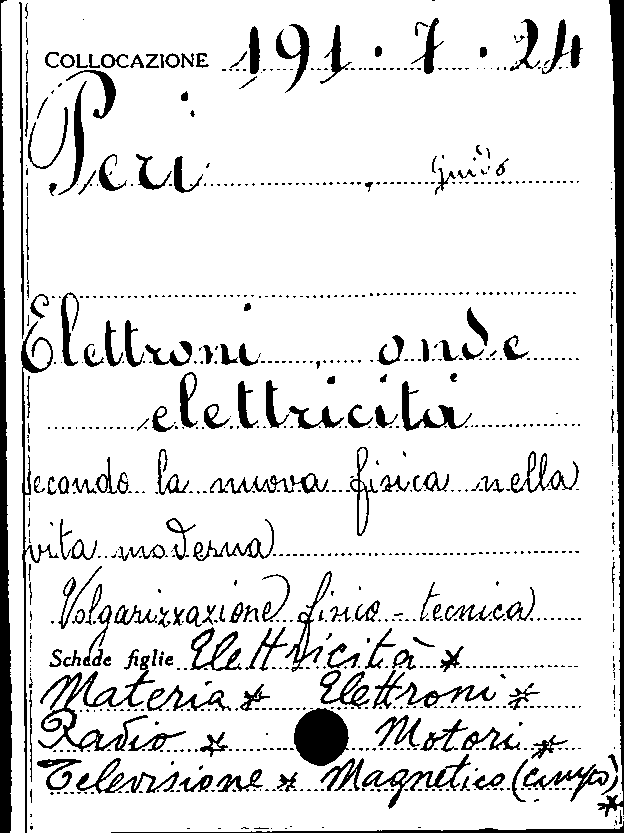 COLLOCAZIONE 191.7.24
Peri, Guido
Elettroni, onde
elettricità
secondo la nuova fisica nella
vita moderna
Volgarizzazione fisico-tecnica
Schede figlie Elettricità *
Materia * Elettroni *
Radio * Motori *
Televisione * Magnetico (campo)
*